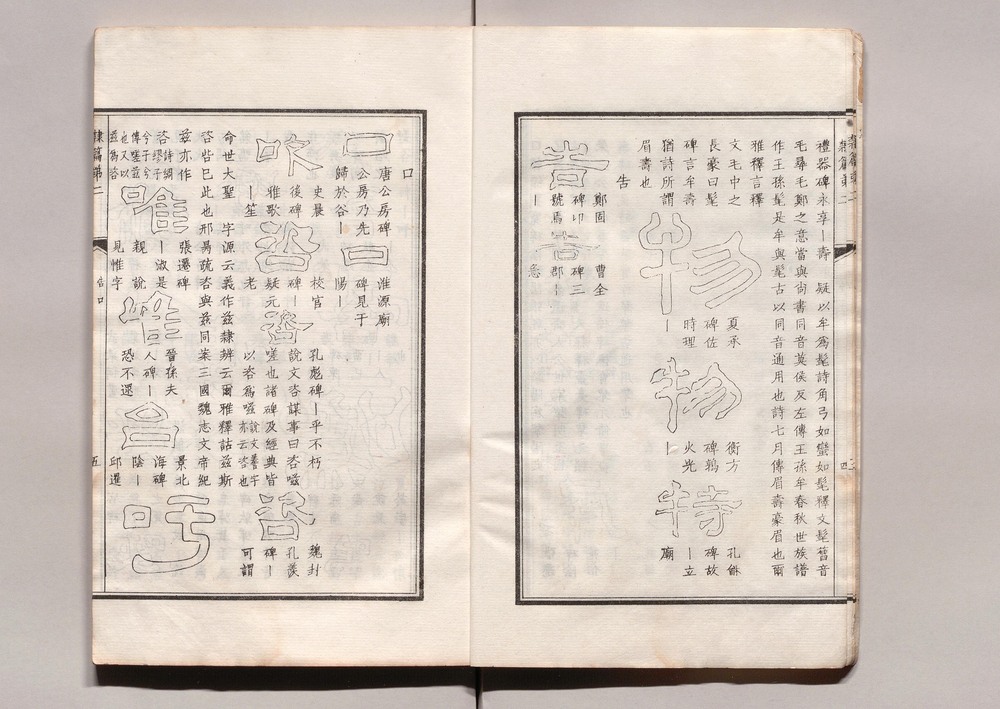 禮器碑永享壽 疑以牟為髦詩角弓如蠻如髦釋文髦舊音
毛尋毛鄭之意當與尚書同音莫侯反左傳王孫牟春秋世族譜
作王孫髦是牟與髦古以同音通用也詩七月傳眉壽豪眉也爾
雅釋言釋
文毛中之
長豪曰髦
碑言牟壽
猶詩所謂
眉壽也
物
夏承
碑佐
時理
物
衡方
碑鶉
火光
物
特
孔龢
碑故
立
廟
告
告
鄭固
碑卬
號焉
告
曹全
碑三
郡
急
口
口
唐公房碑
公房乃先
歸於谷口
口
淮源廟
碑見于
陽
吹
史晨
後碑
雅歌
笙
咨
校官
碑
疑元
老
咨
孔彪碑 乎不朽
說文咨謀事曰咨嗞
嗟也諸碑及經典皆
以咨為嗞
咨
魏封
孔羨
碑
可謂
命世大聖 字源云義作茲隸辨云爾雅釋詁茲斯
咨呰已此也邢昺疏咨與茲同案三國魏志文帝紀
茲亦作
咨
唯
張遷碑
淑是
親 說
見惟字
唯
晉孫夫
人碑
恐不還
台
景北
海碑
陰
邱暹
吁
隸篇第二
告口
五